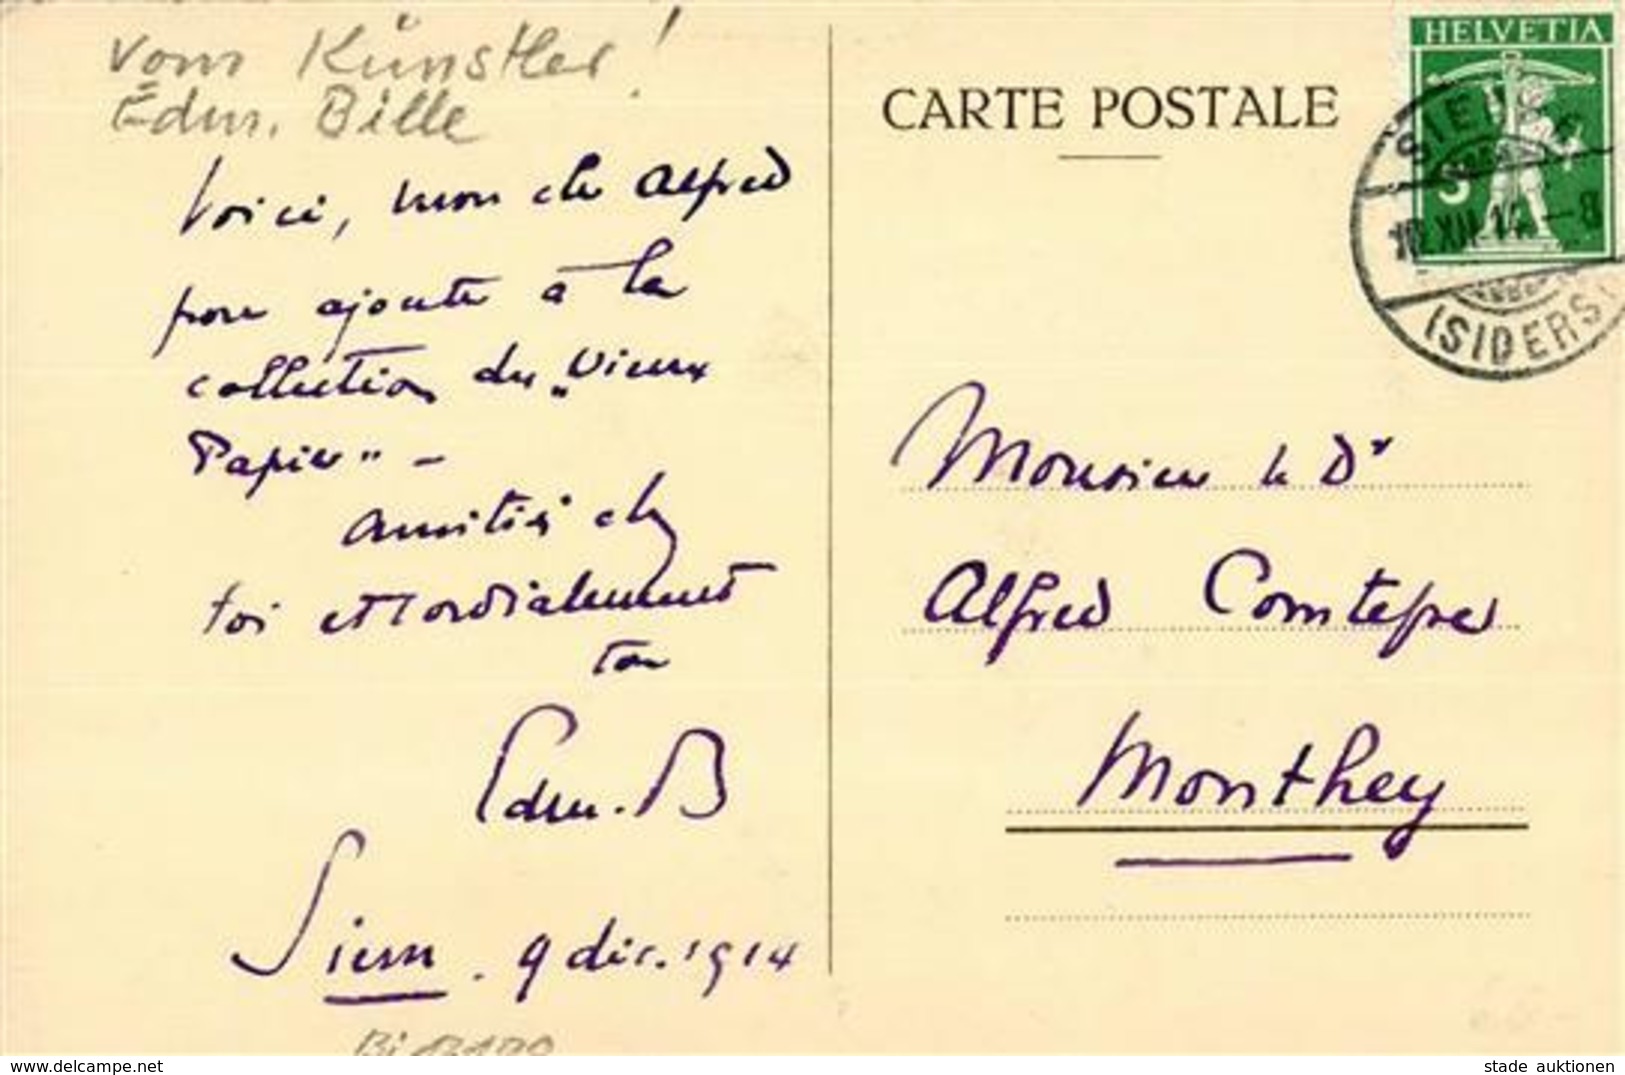 vom Künstler!
Edm. Bille
Voici, mon che Alfred
pour ajouter à la
collection du „Vieux
Papier" –
Amitiés chez
toi et cordialement
ton
Edm. B
Sierre. 9 déc. 1914
CARTE POSTALE
HELVETIA
5
SIERRE
10.XII.14. –8
(SIDERS)
Monsieur le Dr
Alfred Comtesse
Monthey
stade auktionen